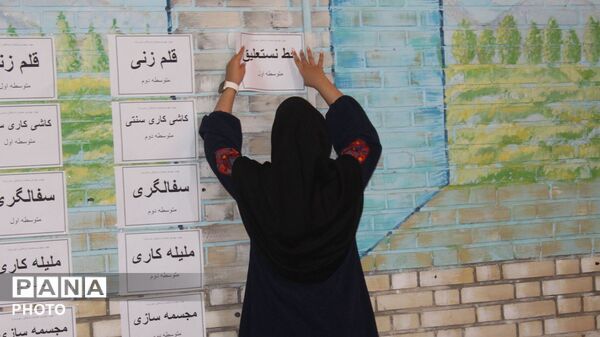 خط نستعلیق
متوسطه اول
قلم زنی
متوسطه دوم
قلم زنی
متوسطه اول
کاشی کاری سنتی
متوسطه دوم
کاشی کاری سنتی
متوسطه اول
سفالگری
متوسطه دوم
سفالگری
متوسطه اول
ملیله کاری
متوسطه دوم
ملیله کاری
مجسمه سازی
متوسطه دوم
مجسمه سازی
PANA
PHOTO